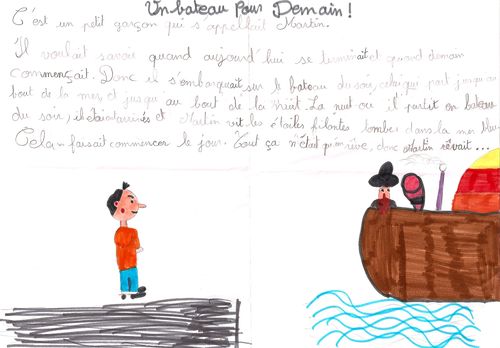 Un bateau pour Demain !
C'est un petit garçon qui s'appellait Martin.
Il voulait savoir quand aujourd'hui se terminait et quand demain
commençait. Donc il s'embarquait sur le bateau du soir, celui qui part jusqu'au
bout de la mer et jusqu'au bout de la nuit. La nuit ou il partit en bateau
du soir, il était et Martin vit les étoiles filantes tomber dans la mer bleu
Cela faisait commencer le jour. Tout ça n'était qu'un rêve, donc Martin rêvait...